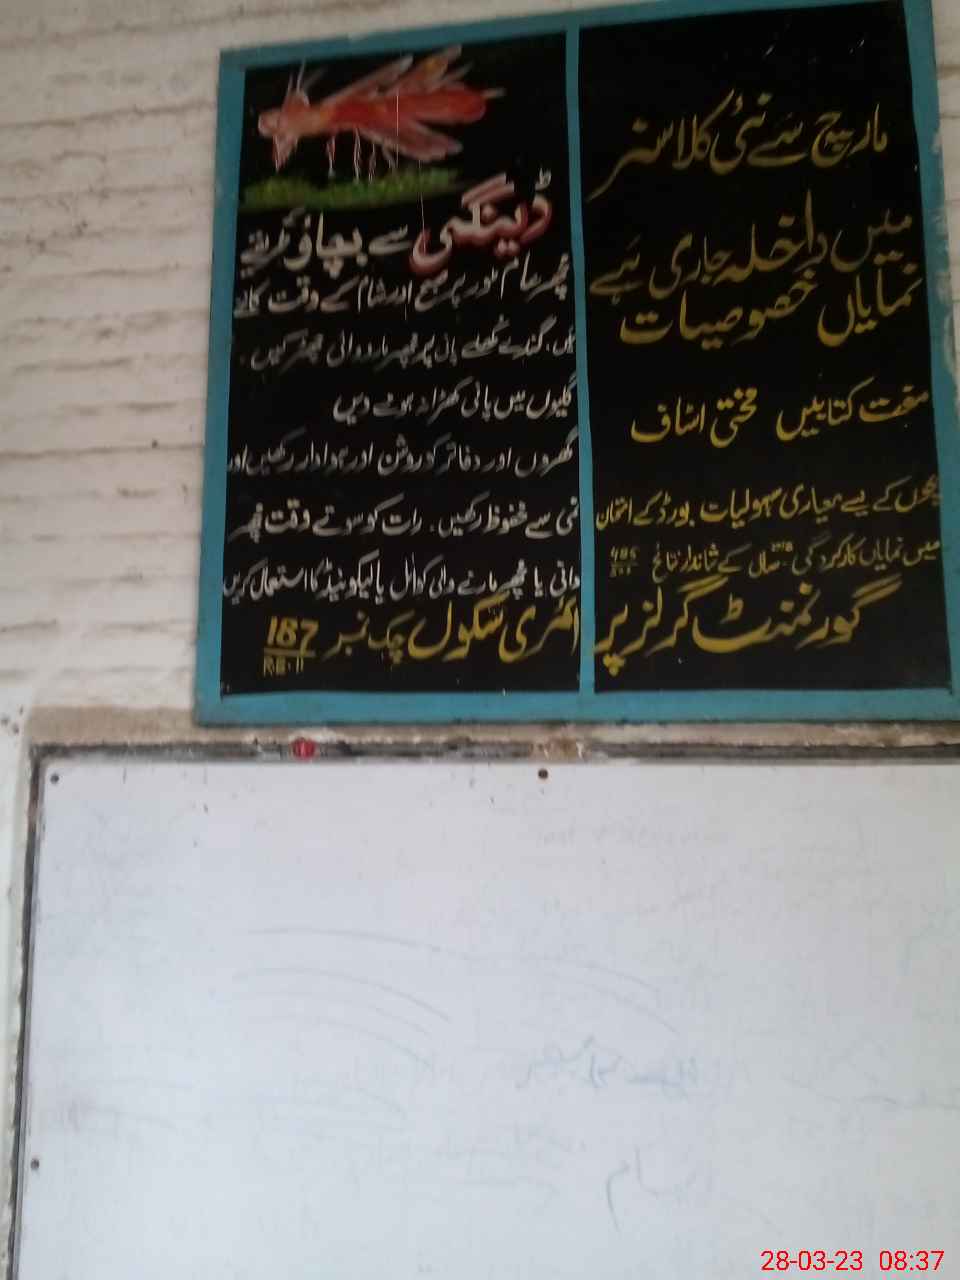 مارچ سے نئی کلاسز
میں داخلہ جاری ہے
نمایاں خصوصیات
مفت کتابیں محنتی اسٹاف
بچوں کے لیے معیاری سہولیات بورڈ کے امتحان
میں نمایاں کارکردگی سال کے شاندار نتائج 485
ڈینگی سے بچاؤ کے طریقے
مچھر عام طور پر صبح اور شام کے وقت کاٹتے
ہیں۔ گندے کھلے پانی پر مچھر مار دوائی چھڑکیں۔
گلیوں میں پانی کھڑا نہ ہونے دیں
گھروں اور دفاتر کو روشن اور ہوادار رکھیں اور
نمی سے محفوظ رکھیں۔ رات کو سوتے وقت مچھر
دانی یا مچھر مارنے والی کوائل یا لیکوئیڈ کا استعمال کریں
گورنمنٹ گرلز پرائمری سکول چک نمبر 187
R.B.II
28-03-23 08:37